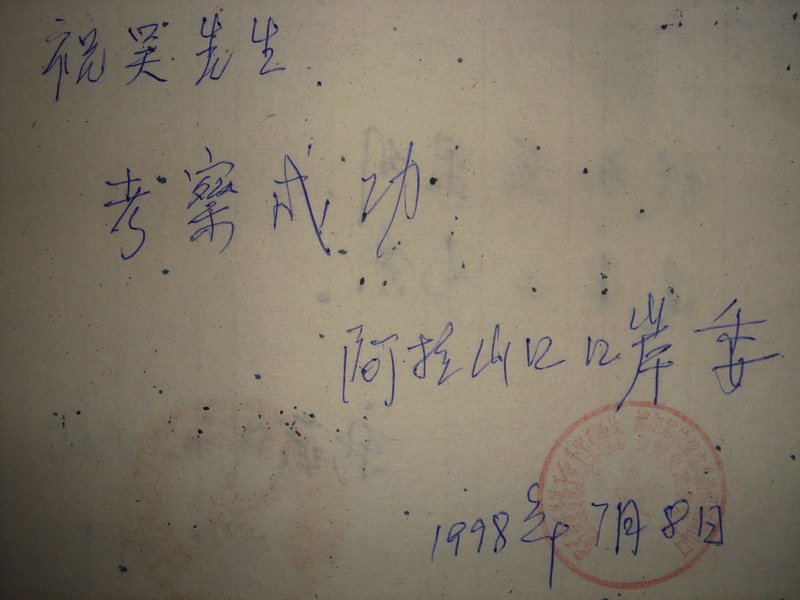 祝吴先生
考察成功
阿拉山口口岸委
1998年7月8日